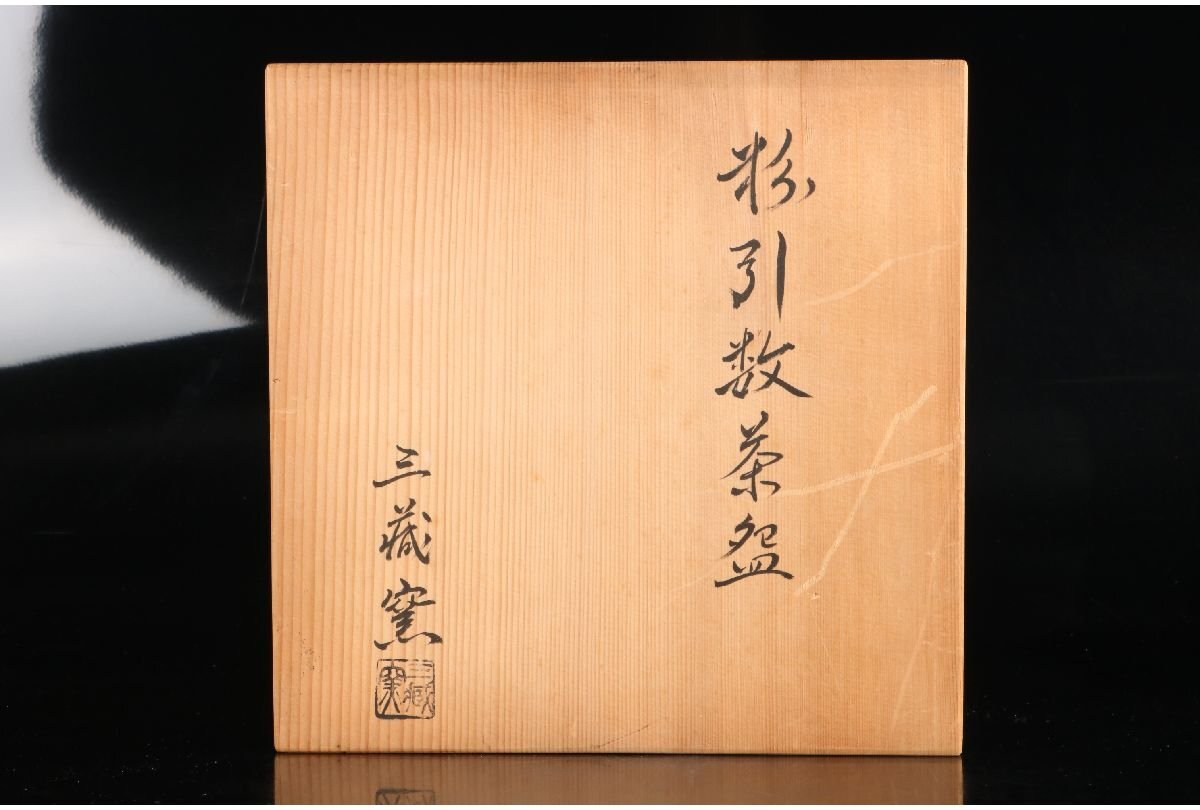 粉引数茶盌
三蔵窯
三蔵窯